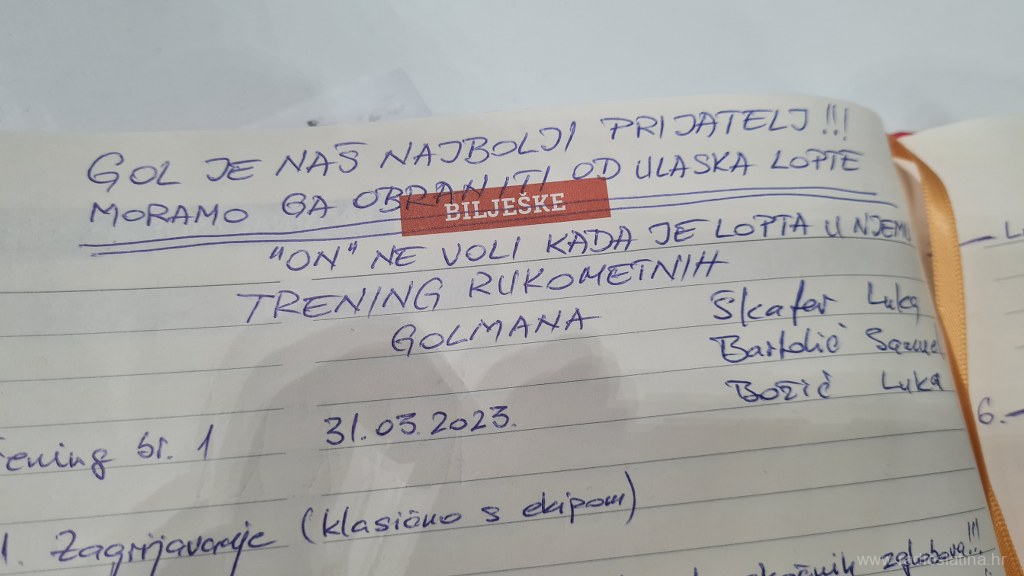 GOL JE NAŠ NAJBOLJI PRIJATELJ !!!
MORAMO GA OBRANITI OD ULASKA LOPTE
BILJEŠKE
"ON" NE VOLI KADA JE LOPTA U NJEMU
TRENING RUKOMETNIH
GOLMANA
Škafer Luka
Bartolić Samuel
Božić Luka
Trening br. 1 31.03.2023.
1. Zagrijavanje (klasično s ekipom)
zglobova!!!
6.